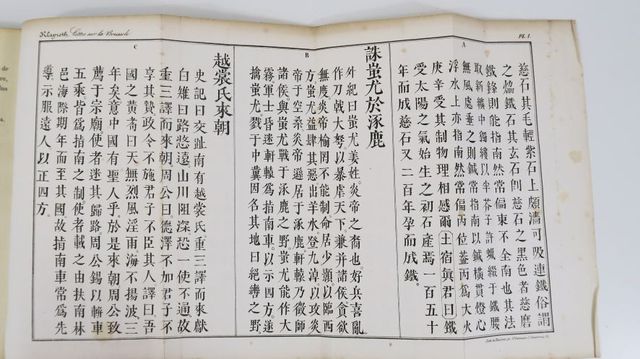 Klaproth, Lettre sur la Boussole.
Pl. I.
A
慈石其毛輕紫石上頗濇可吸連鐵俗謂
之熁鐵石其玄石卽慈石之黑色者慈磨
鐵鋒則能指南然常偏東不全南也其法
取新纊中獨縷以半芥子許蠟綴于鐵
無風處垂之則鍼常指南以鍼橫貫燈心
浮水上亦指南然常偏丙位蓋丙為大火
庚辛受其制物理相感爾土宿眞君曰鐵
受太陽之氣始生之初石產焉一百五十
年而成慈石又二百年孕而成鐵
B
誅蚩尤於涿鹿
外紀曰蚩尤姜姓炎帝之裔也好兵喜亂
作刀戟大弩以暴虐天下兼并諸侯貪欲
無度炎帝榆罔不能制命居少顥以臨西
方蚩尤益肆其惡出羊水登九淖以攻炎
帝于空桑炎帝遜居于涿鹿軒轅乃徵師
諸侯與蚩尤戰于涿鹿之野蚩尤能作大
霧軍士昏迷軒轅為指南車以示四方遂
擒蚩尤戮于中冀因名其地曰絕轡之野
C
越裳氏來朝
史記曰交趾南有越裳氏重三譯而來獻
白雉曰路悠遠山川阻深恐一使不通故
重三譯而來朝周公曰德澤不加君子不
享其贄政令不施君子不臣其人譯曰吾
國之黃耇曰天無烈風淫雨海不揚波三
年矣意中國有聖人乎於是來朝周公致
薦于宗廟使者迷其歸路周公錫以軿車
五乘皆為指南之制使者載之由扶南林
邑海際期年而至其國故指南車常為先
導示服遠人以正四方